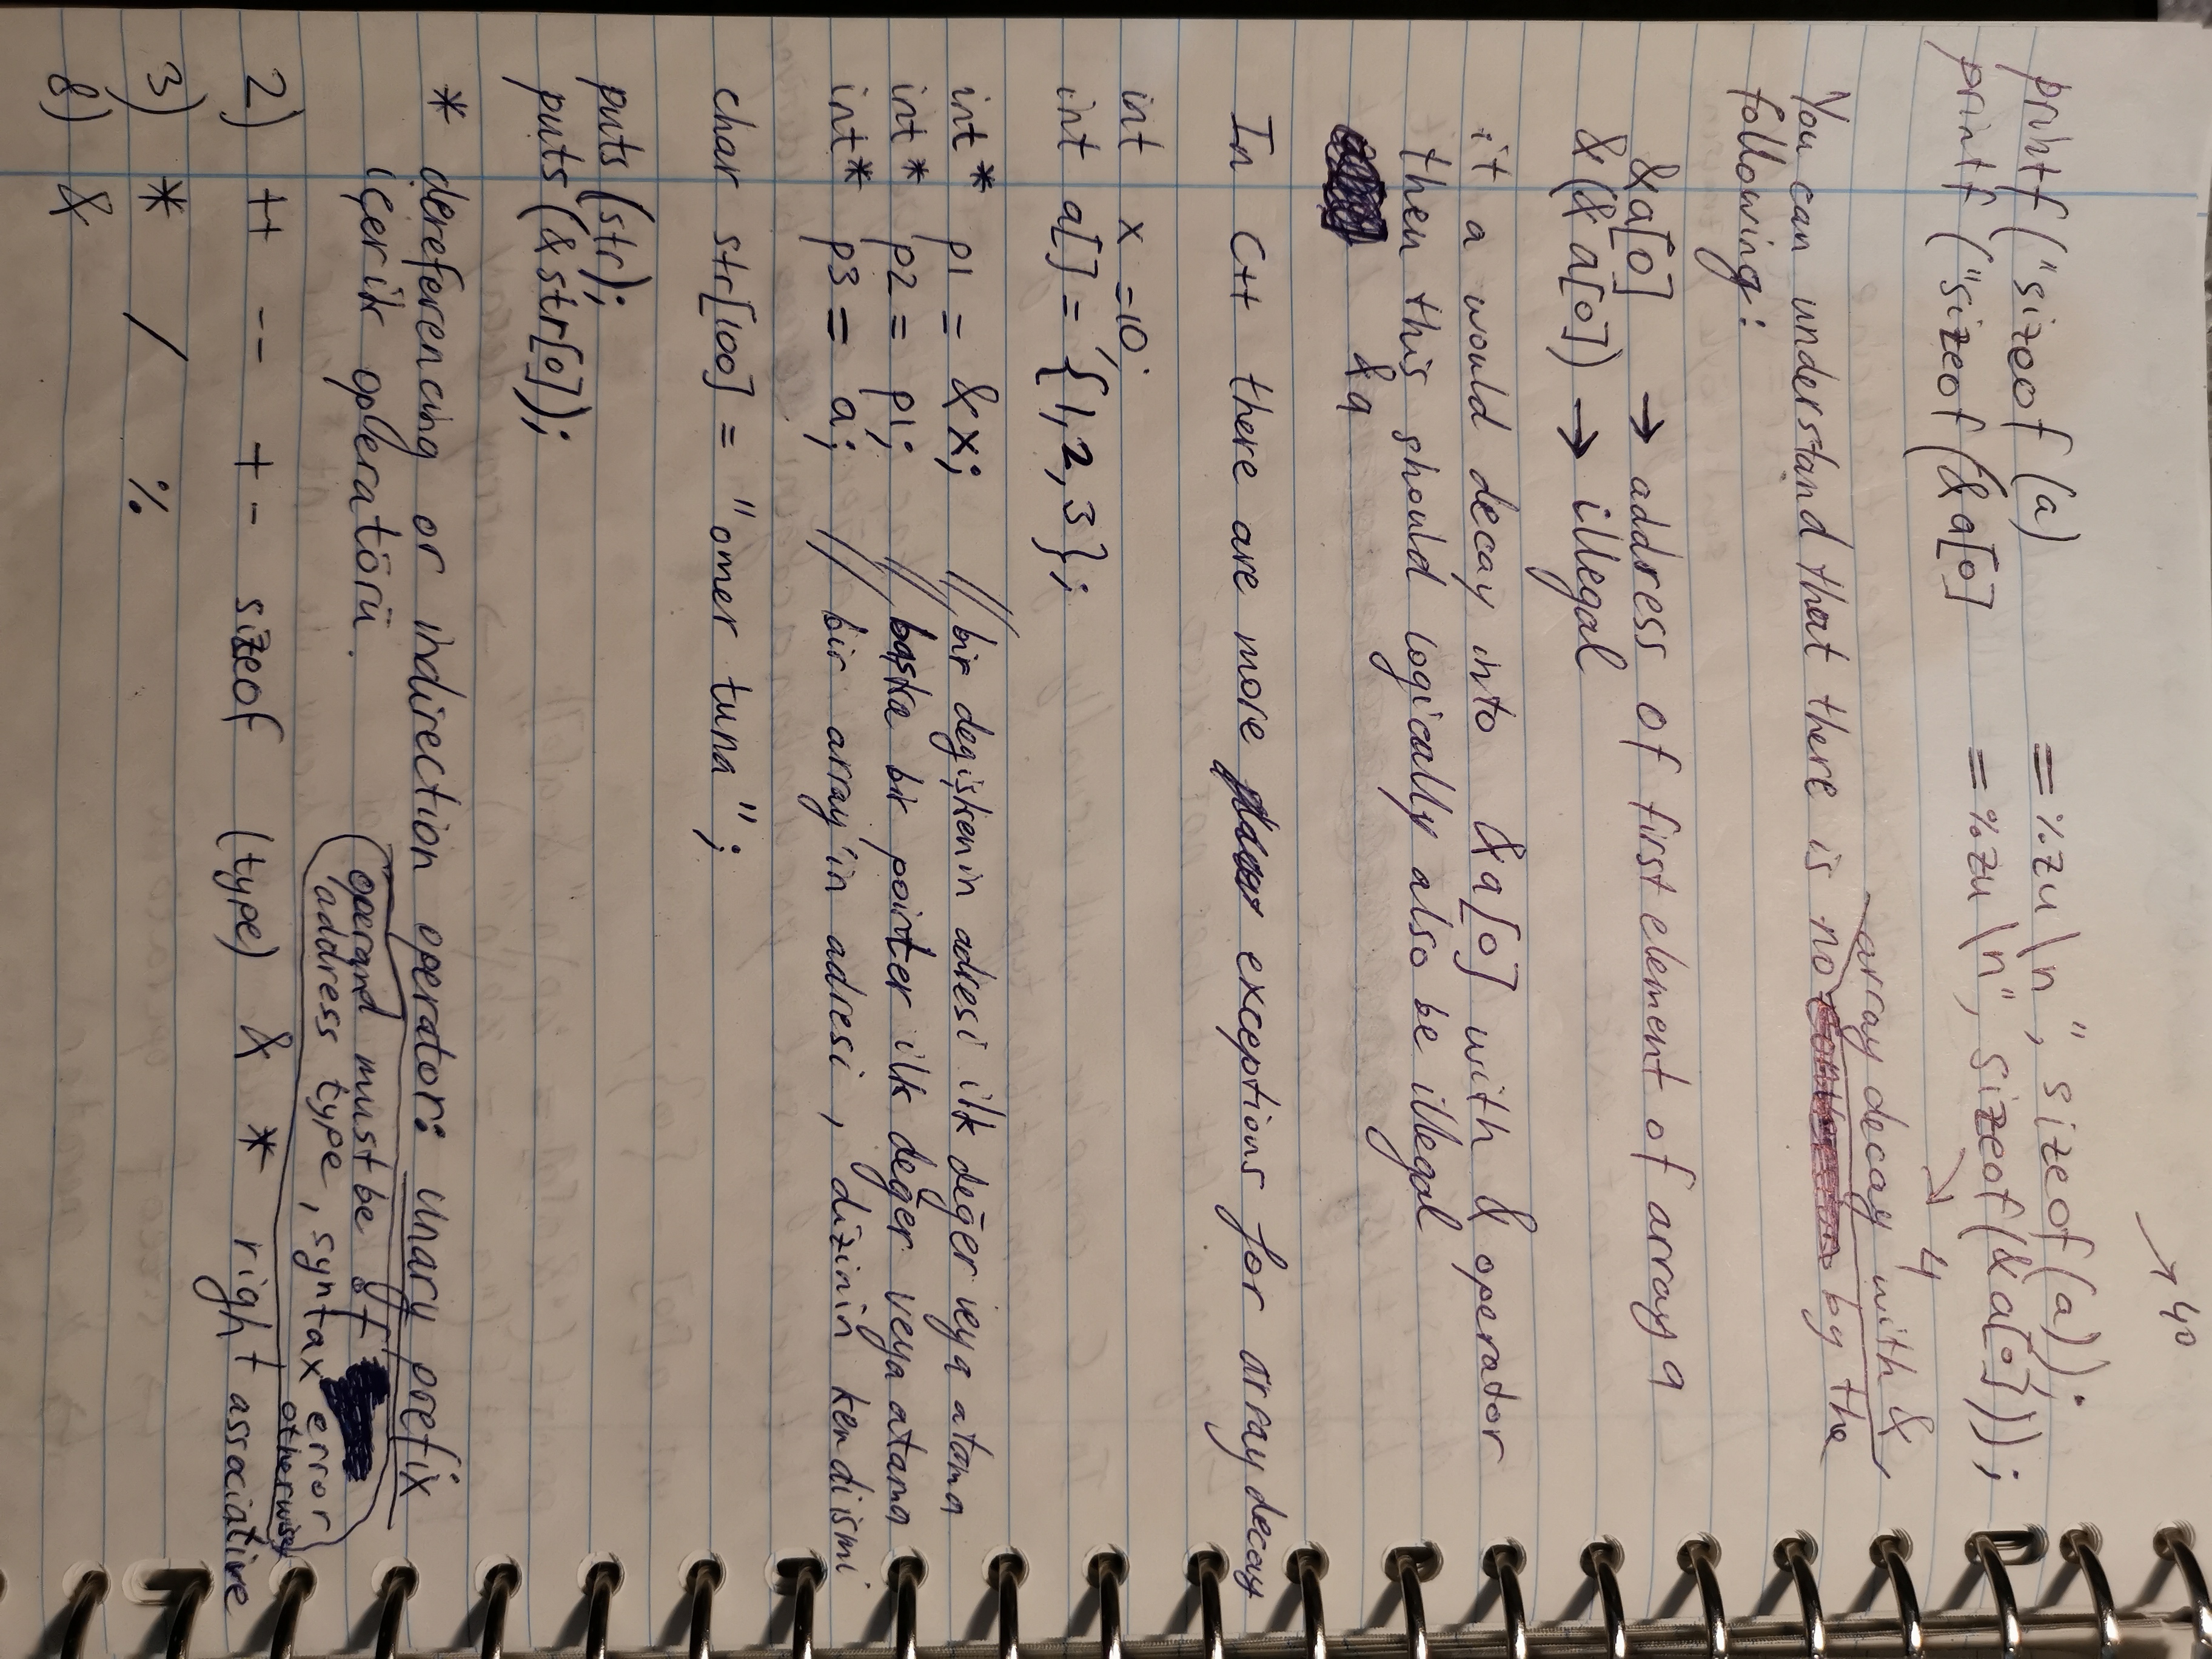 → 40
printf ("sizeof (a) = %zu \n", sizeof(a));
printf ("sizeof (&a[0] = %zu \n", sizeof(&a[0]));
→ 4
array decay with &
You can understand that there is no by the
following:
&a[0] → address of first element of array a
&(&a[0]) → illegal
it a would decay into &a[0] with & operator
then this should logically also be illegal
&a
In C++ there are more exceptions for array decay
int x =10;
int a[] = {1,2,3};
int* p1 = &x; // bir degişkenin adresi ilk değer veya atama
int* p2 = p1; // başka bir pointer ilk değer veya atama
int* p3 = a; // bir array'in adresi, dizinin kendi ismi
char str[100] = "omer tuna";
puts (str);
puts (&str[0]);
* dereferencing or indirection operator: unary prefix
içerik operatörü.
operand must be of
address type, syntax error
otherwise
2) ++ -- + - sizeof (type) & * right associative
3) * / %
8) &